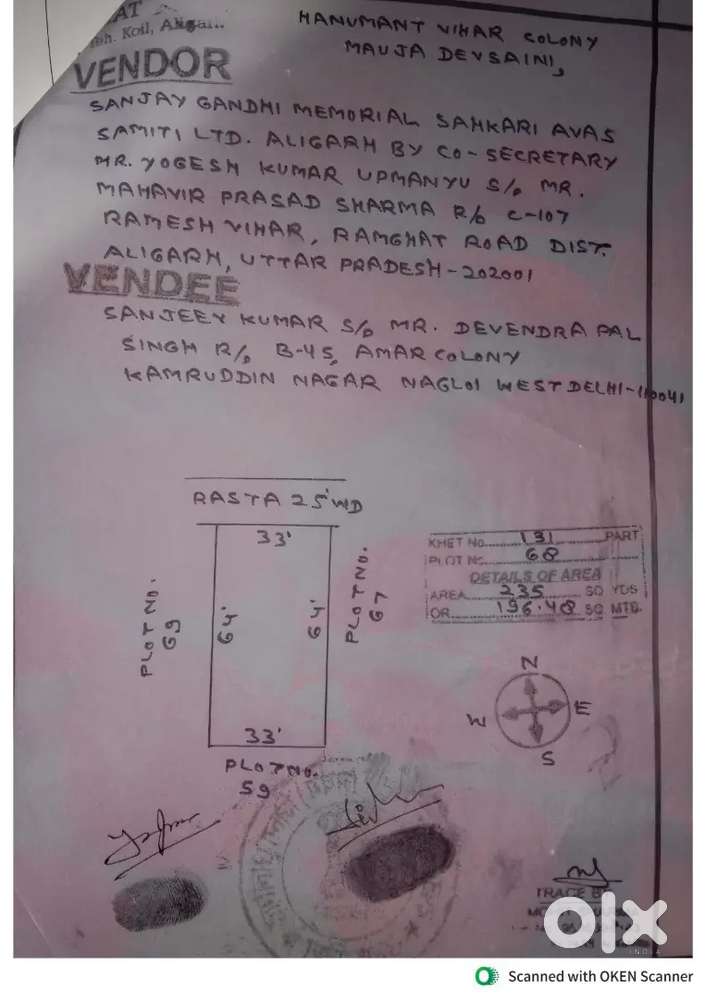 AT
sh. Koil, Aligar..
HANUMANT VIHAR COLONY
MAUJA DEVSAINI,
VENDOR
SANJAY GANDHI MEMORIAL SAHKARI AVAS
SAMITI LTD. ALIGARH BY CO-SECRETARY
MR. YOGESH KUMAR UPMANYU S/o MR.
MAHAVIR PRASAD SHARMA R/o C-107
RAMESH VIHAR, RAMGHAT ROAD DIST.
ALIGARH, UTTAR PRADESH-202001
VENDEE
SANJEEV KUMAR S/o MR. DEVENDRA PAL
SINGH R/o B-45, AMAR COLONY
KAMRUDDIN NAGAR NAGLOI WEST DELHI-110041
RASTA 25'WD
33'
PLOT NO.
69
64'
64'
PLOT NO.
67
33'
PLOT NO.
59
KHET No. 131 PART
PLOT No. 68
DETAILS OF AREA
AREA 235 SQ YDS
OR 196.48 SQ MTS.
N
W E
S
TRACE B
olx
INDIA
Scanned with OKEN Scanner